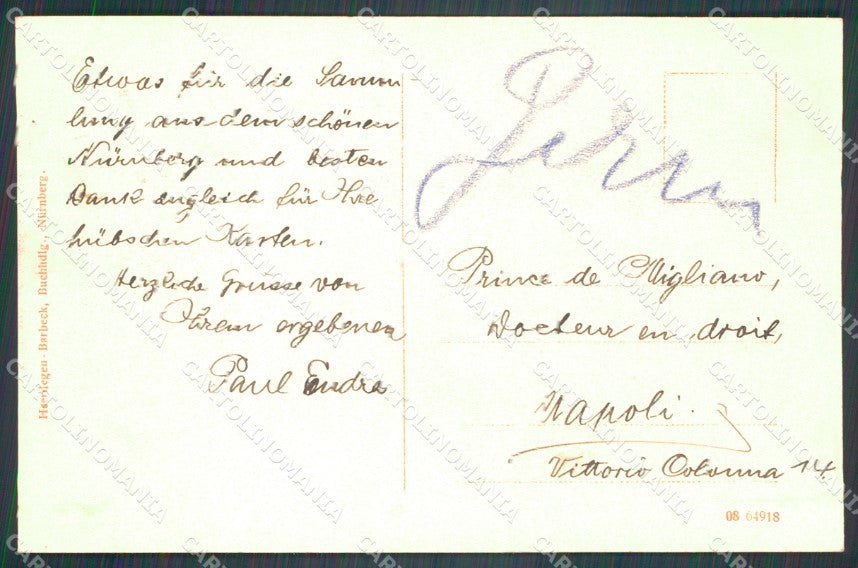 Etwas für die Samm
lung aus dem schönen
Nürnberg und besten
Dank zugleich für Ihre
hübschen Karten.
Herzliche Grüsse von
Ihrem ergebenen
Paul
Prince de Migliano,
Docteur en droit,
Napoli.
Vittorio Colonna 14
Barbeck, Buchhdlg., Nürnberg.
08 64918
CARTOLINOMANIA